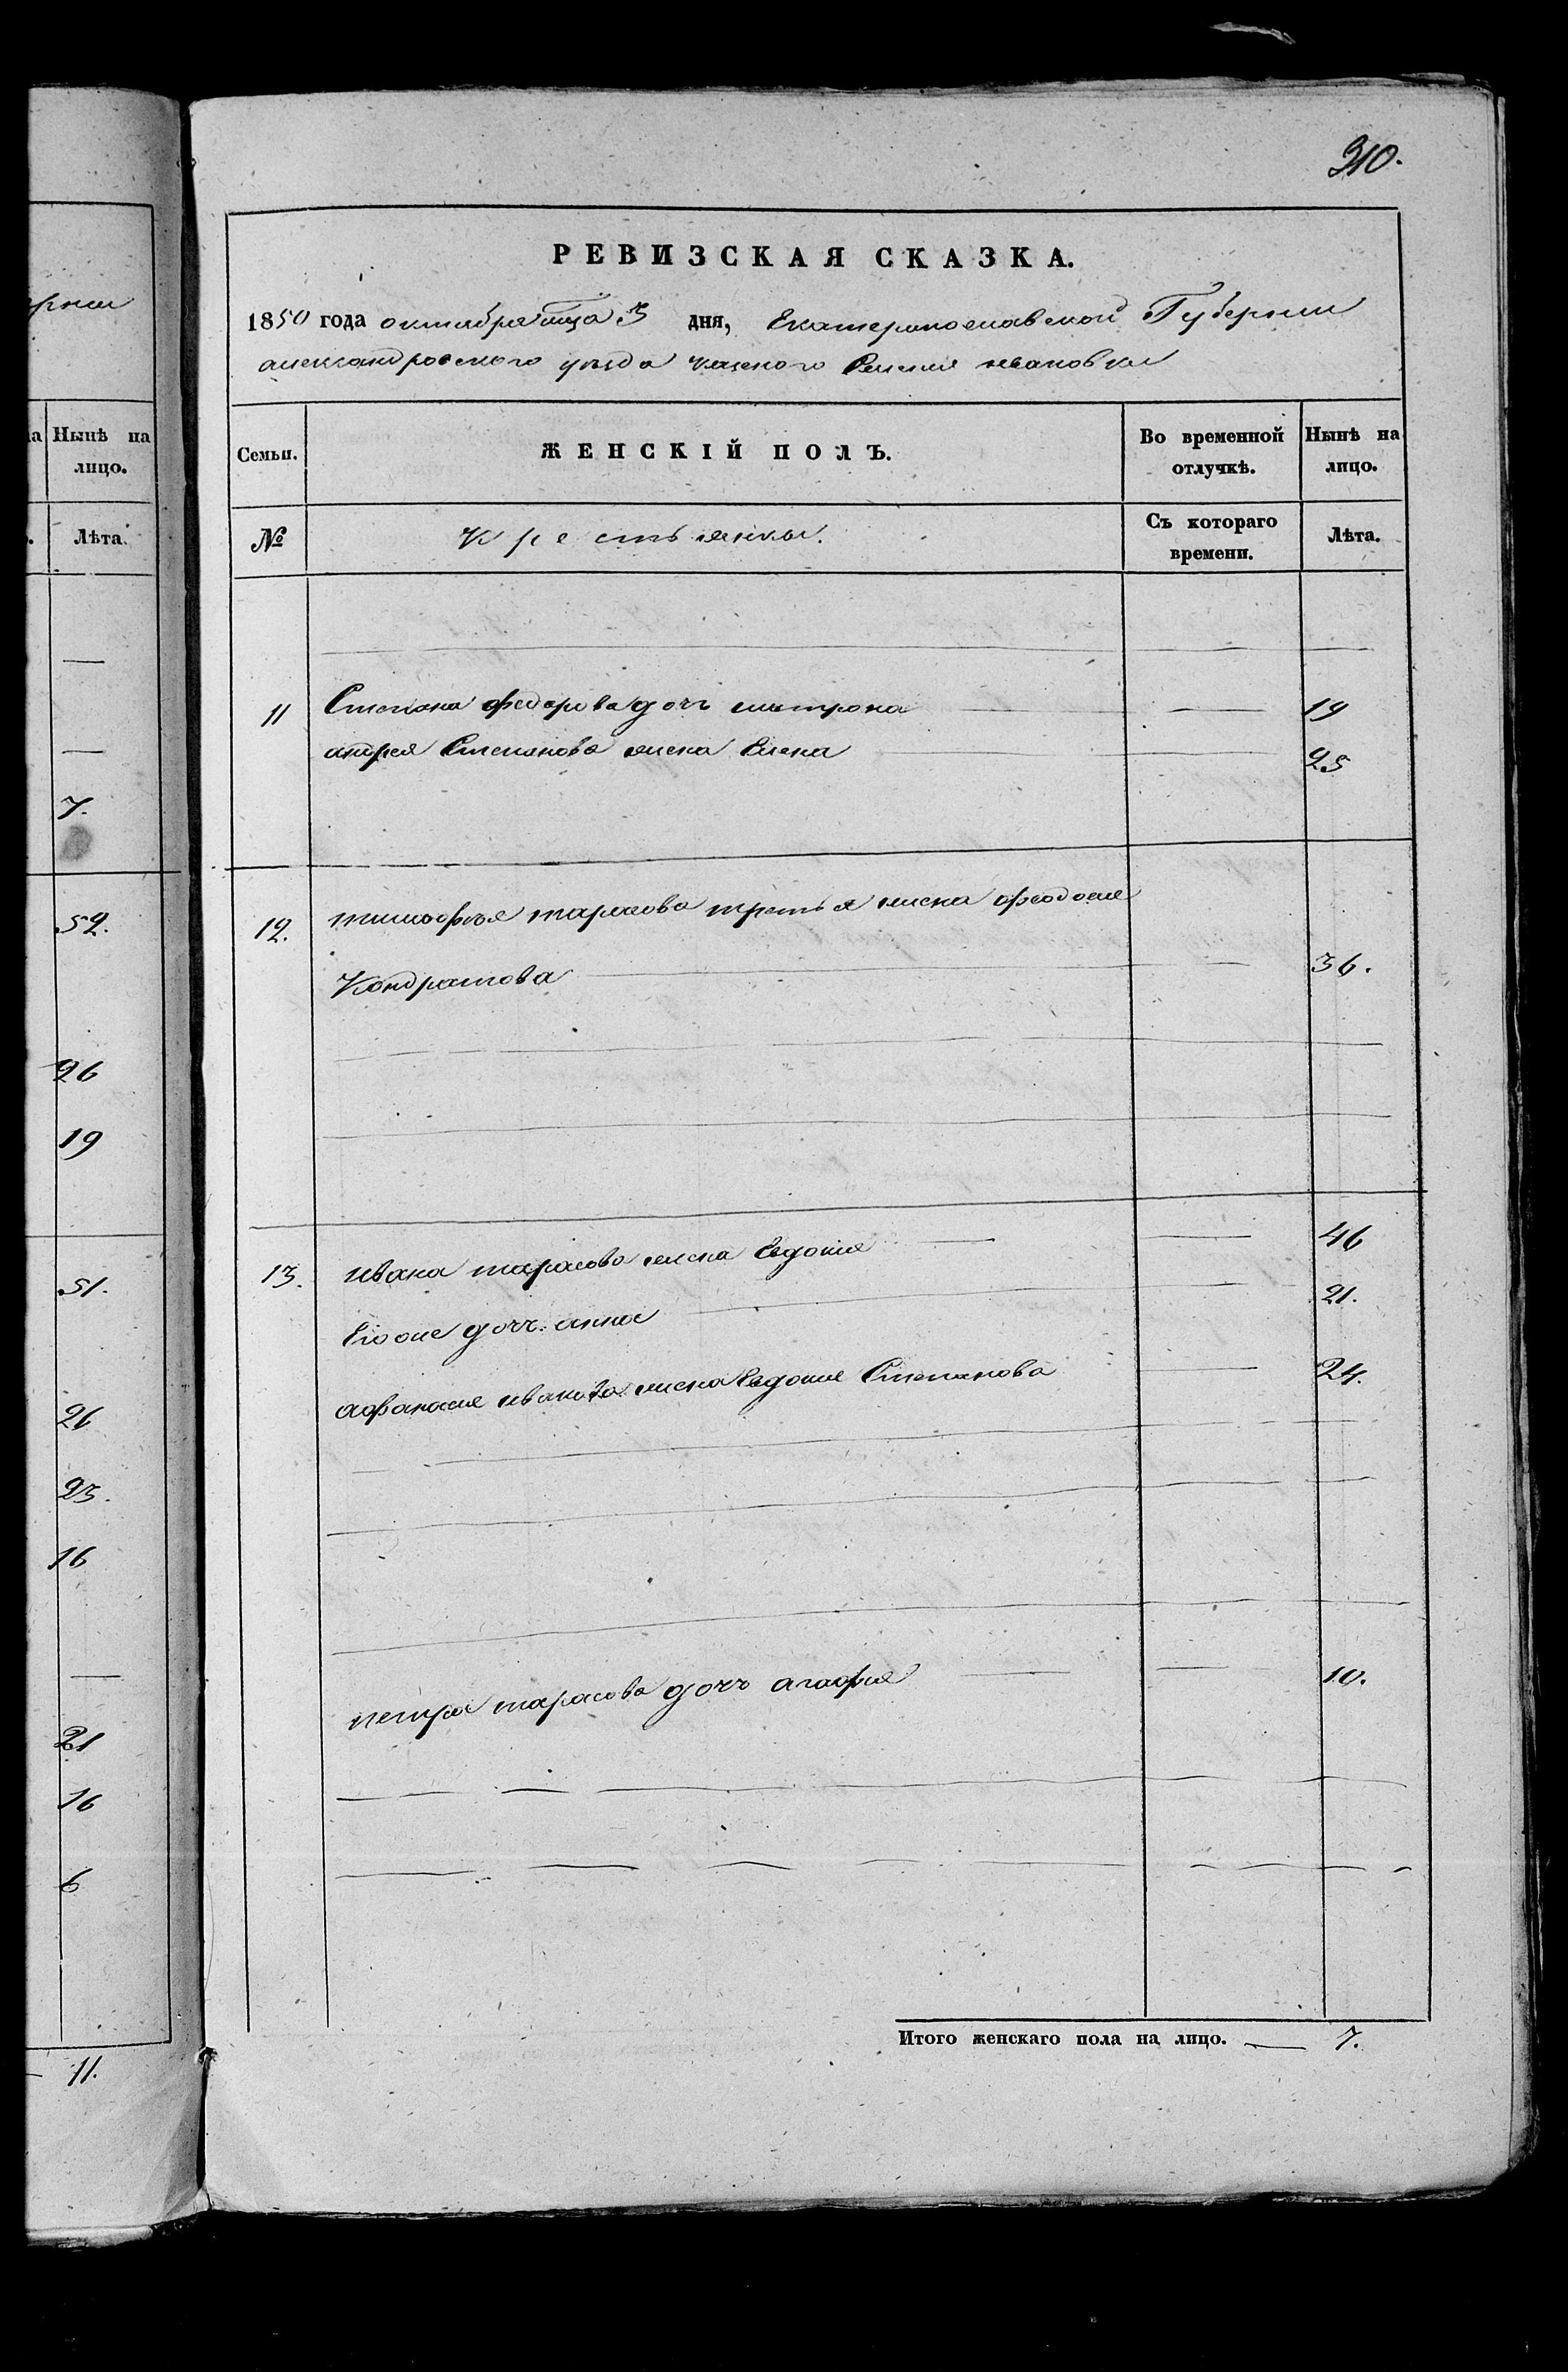 рнии
на Нынѣ на
лицо.
Лѣта.
—
—
7.
52.
26
19
51.
26
23.
16
—
21
16
6
11.
310.
РЕВИЗСКАЯ СКАЗКА.
1850 года октября мца 3 дня, Екатеринославской Губернии
александровского уезда казеного Селения ивановки
Семьи. ЖЕНСКІЙ ПОЛЪ. Во временной отлучкѣ. Нынѣ на лицо.
№ Крестьянки. Съ котораго времени. Лѣта.
11 Степана федорова дочь матрона — — 19
андрея Степанова жена Елена — 25
12. тимофея тарасова третья жена феодосия
Кондратова — — 36.
13. ивана тарасова жена Евдокия — — 46
Его дочь анна — 21.
афанасия иванова жена Евдокия Степанова — 24.
петра тарасова дочь агафия — — 10.
Итого женскаго пола на лицо. — 7.